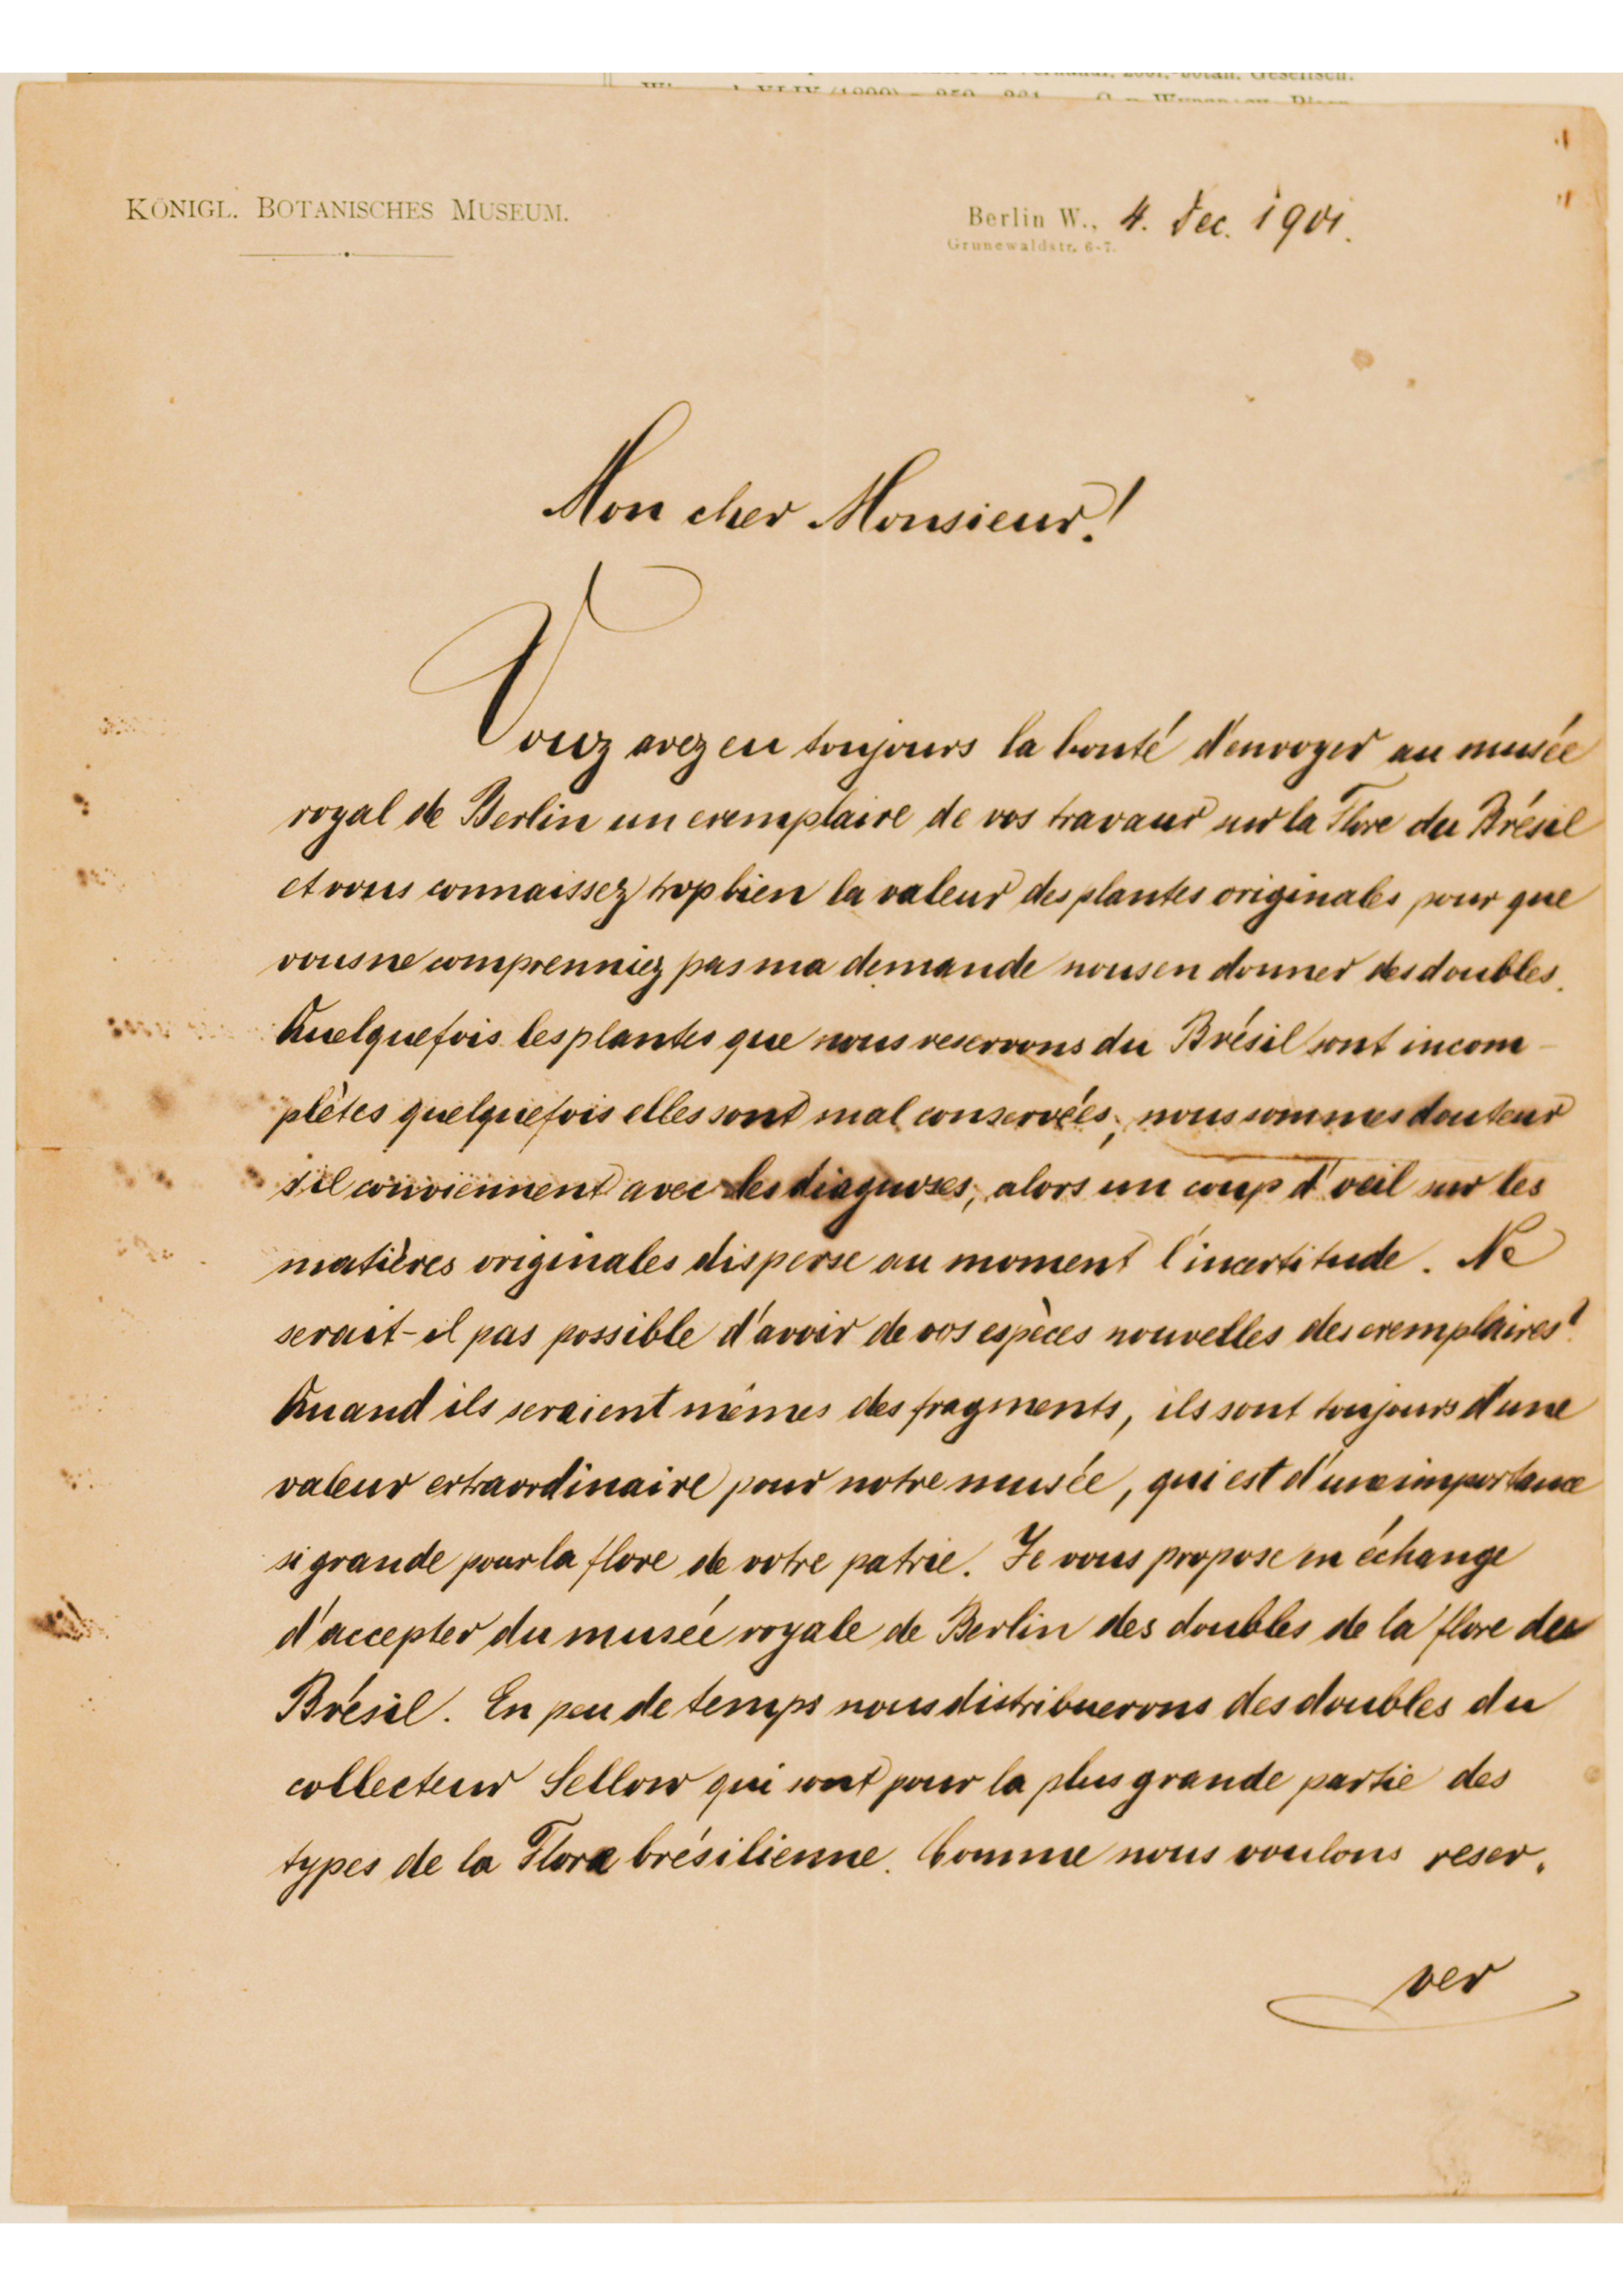 KÖNIGL. BOTANISCHES MUSEUM.
Berlin W., 4. Dec. 1901.
Grunewaldstr. 6-7.
Mon cher Monsieur!
Vouz avez eu toujours la bonté d'envoyer au musée
royal de Berlin un exemplaire de vos travaux sur la Flore du Brésil
et vous connaissez trop bien la valeur des plantes originales pour que
vous ne comprenniez pas ma demande nous en donner des doubles.
Quelquefois les plantes que nous reservons du Brésil sont incom-
plètes quelquefois elles sont mal conservées, nous sommes douteux
s'il conviennent avec les diagnoses, alors un coup d'oeil sur les
matières originales disperse au moment l'incertitude. Ne
serait-il pas possible d'avoir de vos espèces nouvelles des exemplaires?
Quand ils seraient mêmes des fragments, ils sont toujours d'une
valeur extraordinaire pour notre musée, qui est d'une importance
si grande pour la flore de votre patrie. Je vous propose en échange
d'accepter du musée royale de Berlin des doubles de la flore du
Brésil. En peu de temps nous distribuerons des doubles du
collecteur Sellow qui sont pour la plus grande partie des
types de la Flora brésilienne. Comme nous voulons reser-
ver